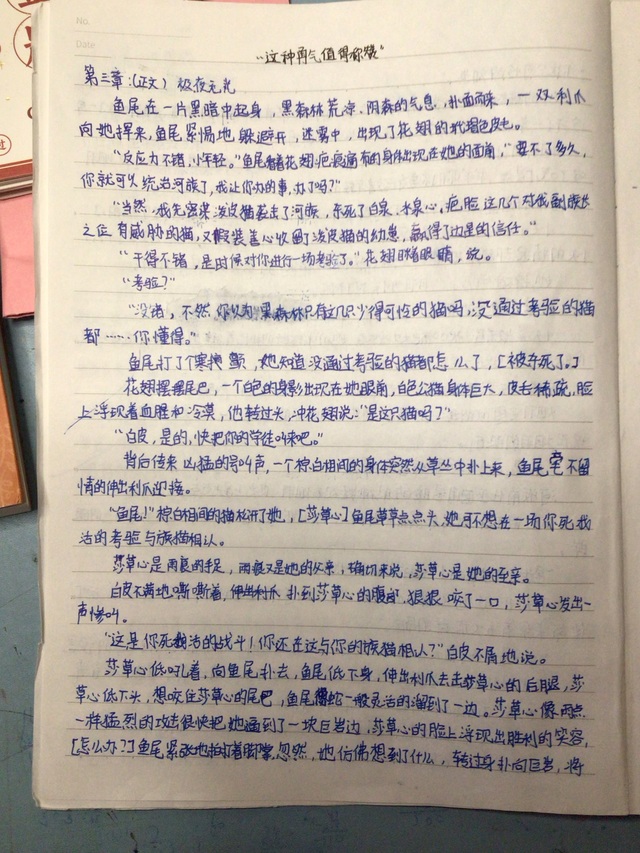 No.
Date
"这种勇气值得你赞"
第三章:(正文) 极夜无光
鱼尾在一片黑暗中起身,黑森林荒凉、阴森的气息,扑面而来,一双利爪
向她挥来,鱼尾紧惕地躲避开,迷雾中,出现了花翅的玳瑁色皮毛。
"反应力不错,小年轻。"鱼尾看着花翅疤痕满布的身体出现在她的西南,"要不了多久,
你就可以统治河族了,我让你办的事,办了吗?"
"当然,我先密谋泼皮猫惹出了河族,杀死了白泉、水泉心、疤脸这几个对我副族长
之位有威胁的猫,又假装善心收留了泼皮猫的幼崽,赢得了边星的信任。"
"干得不错,是时候对你进行一场考验了。"花翅眯着眼睛,说。
"考验?"
"没错,不然,你以为黑森林只有这几只少得可怜的猫吗,没通过考验的猫
都……你懂得。"
鱼尾打了个寒颤,她知道没通过考验的猫都怎么了,[被杀死了。]
花翅摆摆尾巴,一个白色的身影出现在她眼角,白色公猫身体巨大,皮毛稀疏,脸
上浮现着血腥和冷漠,他转过头,冲花翅说:"是这只猫吗?"
"白皮,是的,快把你的学徒叫来吧。"
背后传来凶猛的号叫声,一个棕白相间的身体突然从草丛中扑上来,鱼尾毫不留
情的伸出利爪迎接。
"鱼尾!"棕白相间的猫松开了她,[莎草心]鱼尾草草点点头,她可不想在一场你死我
活的考验与族猫相认。
莎草心是雨衰的手足,雨衰又是她的父亲,确切来说,莎草心是她的至亲。
白皮不满地嘶嘶着,伸出利爪扑到莎草心的腹部,狠狠咬了一口,莎草心发出一
声惨叫。
"这是你死我活的战斗!你还在这与你的族猫相认?"白皮不屑地说。
莎草心低吼着,向鱼尾扑去,鱼尾低下身,伸出利爪去击莎草心的后腿,莎
草心低下头,想咬住莎草心的尾巴,鱼尾像蛇一般灵活的溜到了一边。莎草心像雨点
一样猛烈的攻法很快把她逼到了一块巨岩边,莎草心的脸上浮现出胜利的笑容,
[怎么办?]鱼尾紧张地拍打着脚掌,忽然,她仿佛想到了什么,转过身扑向巨岩,将